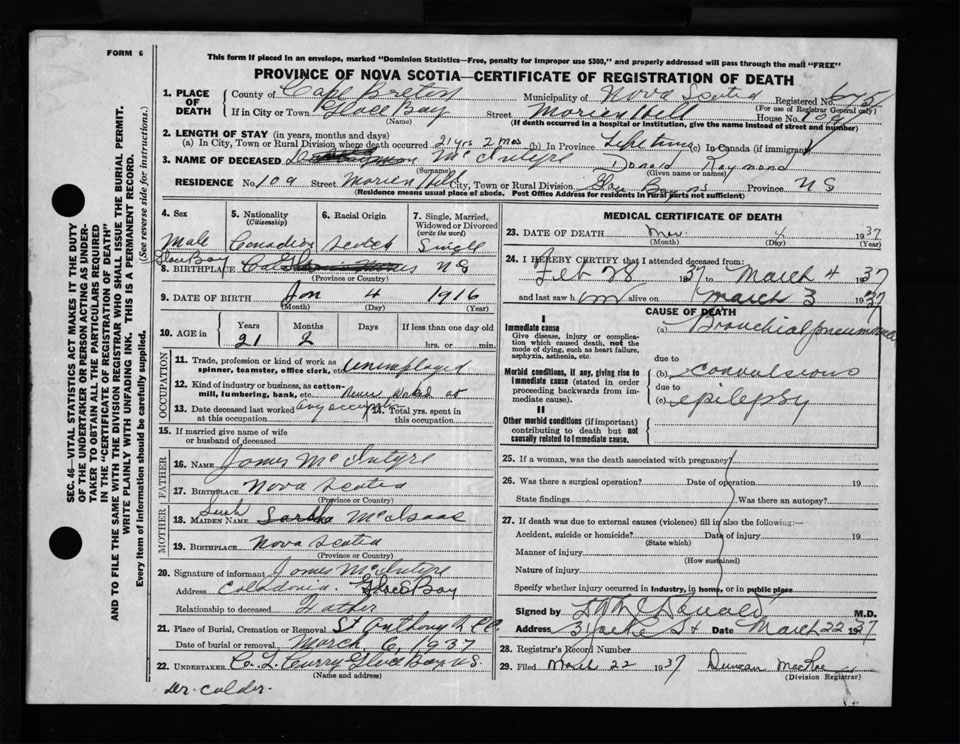 FORM 6
This form if placed in an envelope, marked "Dominion Statistics—Free, penalty for improper use $300," and properly addressed will pass through the mail "FREE"
PROVINCE OF NOVA SCOTIA—CERTIFICATE OF REGISTRATION OF DEATH
1. PLACE OF DEATH
County of Cape Breton Municipality of Nova Scotia Registered No.
(For use of Registrar General only)
If in City or Town Glace Bay Street House No. 109
(Name) (If death occurred in a hospital or institution, give the name instead of street and number)
2. LENGTH OF STAY (in years, months and days)
(a) In City, Town or Rural Division where death occurred 21 yrs 2 mos (b) In Province Life time (c) In Canada (if immigrant)
3. NAME OF DECEASED McIntyre Donald Raymond
(Surname) (Given name or names)
RESIDENCE No. 109 Street Hill City, Town or Rural Division Glace Bay NS Province NS
(Residence means usual place of abode. Post Office Address for residents in rural parts not sufficient)
4. Sex Male
5. Nationality (Citizenship) Canadian
6. Racial Origin Scotch
7. Single, Married, Widowed or Divorced (write the word) Single
8. BIRTHPLACE Glace Bay NS
(Province or Country)
9. DATE OF BIRTH Jan 4 1916
(Month) (Day) (Year)
10. AGE in Years Months Days If less than one day old
21 2 hrs. or min.
OCCUPATION
11. Trade, profession or kind of work as spinner, teamster, office clerk, etc. Unemployed
12. Kind of industry or business, as cotton-mill, lumbering, bank, etc. Never worked at
13. Date deceased last worked at this occupation any occupation
14. Total yrs. spent in this occupation
15. If married give name of wife or husband of deceased
FATHER
16. NAME James McIntyre
17. BIRTHPLACE Nova Scotia
(Province or Country)
MOTHER
18. MAIDEN NAME McIsaac
19. BIRTHPLACE Nova Scotia
(Province or Country)
20. Signature of informant James McIntyre
Address Caledonia Glace Bay
Relationship to deceased Father
21. Place of Burial, Cremation or Removal St Anthony's
Date of burial or removal March 6, 1937
22. UNDERTAKER C. L. Curry Glace Bay N.S.
(Name and address)
Dr. Calder.
MEDICAL CERTIFICATE OF DEATH
23. DATE OF DEATH Mar. 4 1937
(Month) (Day) (Year)
24. I HEREBY CERTIFY that I attended deceased from:
Feb 28 1937 to March 4 1937
and last saw him alive on March 3 1937
CAUSE OF DEATH
I
Immediate cause
Give disease, injury or complication which caused death, not the mode of dying, such as heart failure, asphyxia, asthenia, etc.
(a) Bronchial pneumonia
due to
Morbid conditions, if any, giving rise to immediate cause (stated in order proceeding backwards from immediate cause).
(b) convulsions
due to
(c) epilepsy
II
Other morbid conditions (if important) contributing to death but not causally related to immediate cause.
25. If a woman, was the death associated with pregnancy?
26. Was there a surgical operation? Date of operation 19
State findings Was there an autopsy?
27. If death was due to external causes (violence) fill in also the following:—
Accident, suicide or homicide? Date of injury 19
(State which)
Manner of injury
(How sustained)
Nature of injury
Specify whether injury occurred in industry, in home, or in public place
Signed by M.D.
Address Date March 22 1937
28. Registrar's Record Number
29. Filed March 22 1937 Duncan MacRae
(Division Registrar)
SEC. 46—VITAL STATISTICS ACT MAKES IT THE DUTY
OF THE UNDERTAKER OR PERSON ACTING AS UNDER-
TAKER TO OBTAIN ALL THE PARTICULARS REQUIRED
IN THE "CERTIFICATE OF REGISTRATION OF DEATH"
AND TO FILE THE SAME WITH THE DIVISION REGISTRAR WHO SHALL ISSUE THE BURIAL PERMIT.
WRITE PLAINLY WITH UNFADING INK. THIS IS A PERMANENT RECORD.
Every item of information should be carefully supplied.
(See reverse side for instructions.)